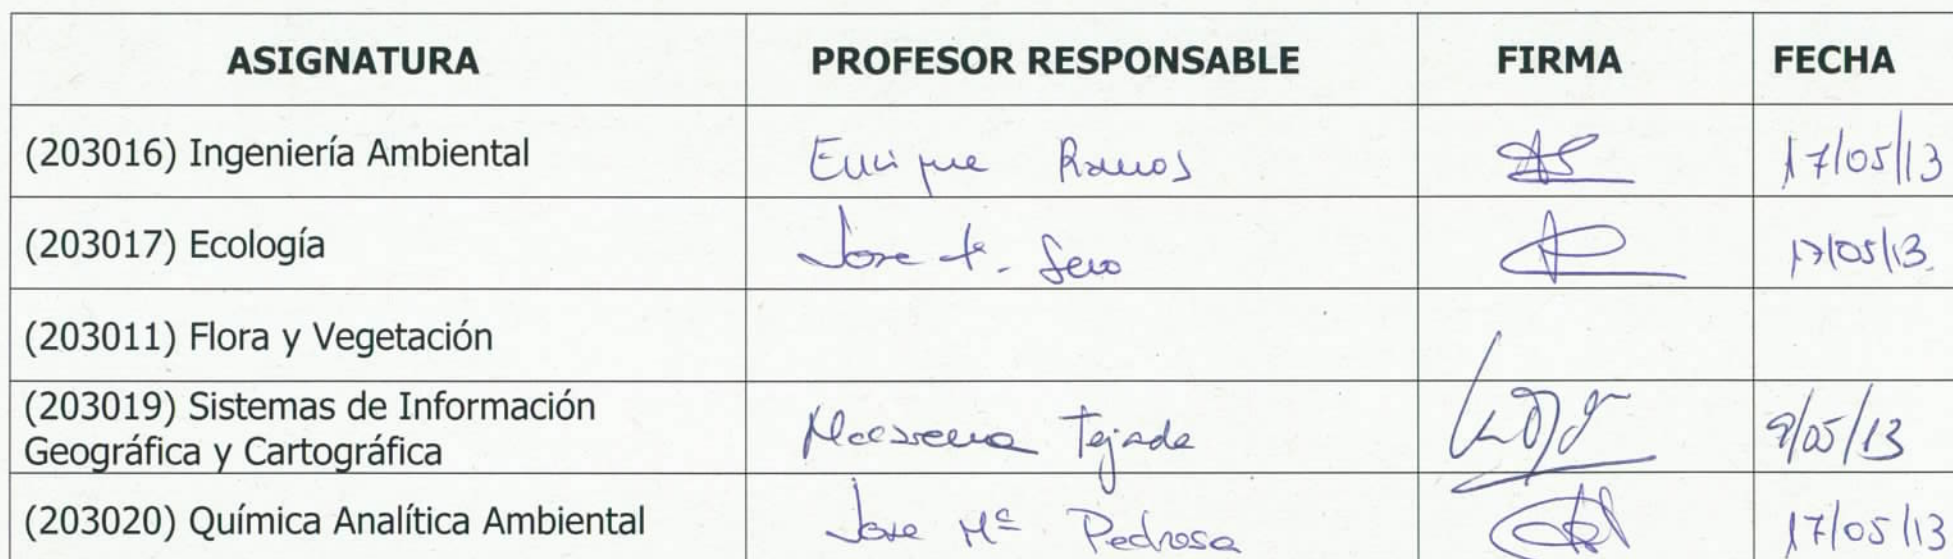 ASIGNATURA PROFESOR RESPONSABLE FIRMA FECHA
(203016) Ingeniería Ambiental Enrique Ramos 17/05/13
(203017) Ecología Jose 17/05/13
(203011) Flora y Vegetación
(203019) Sistemas de Información
Geográfica y Cartográfica Macarena Tejada 9/05/13
(203020) Química Analítica Ambiental Jose Mª Pedrosa 17/05/13